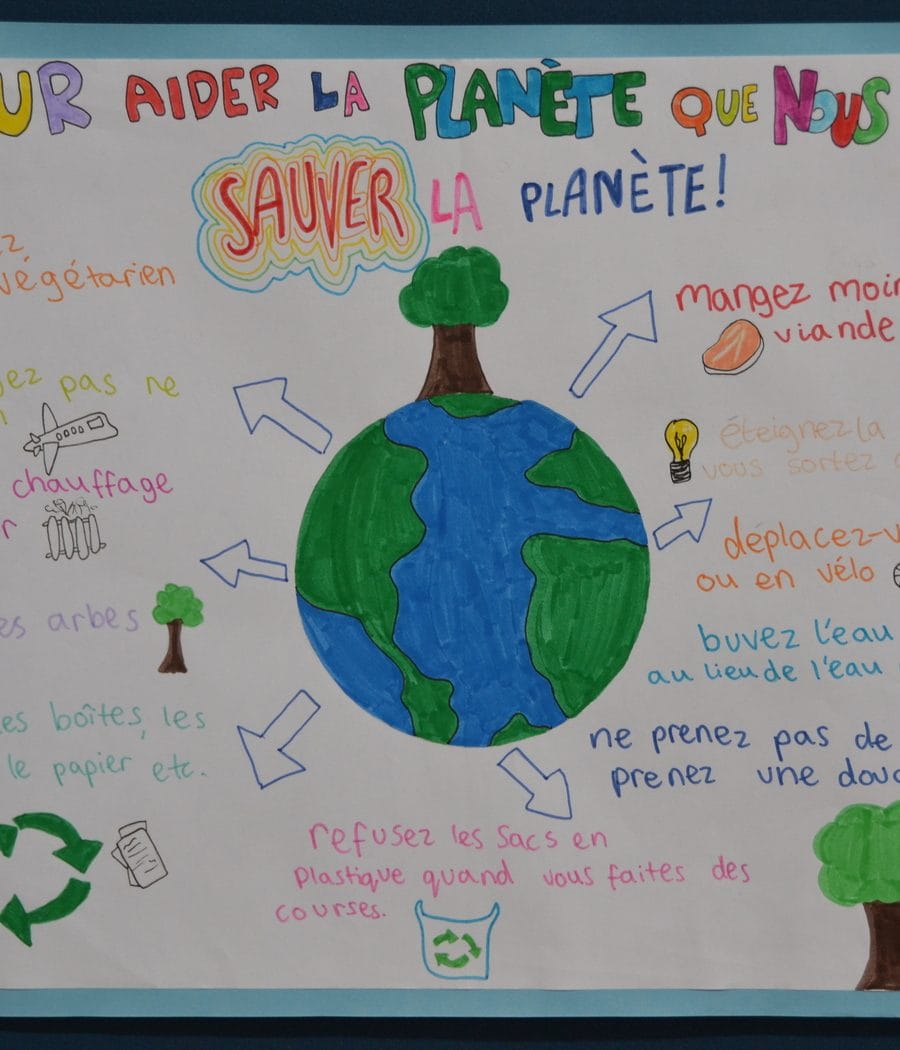 UR AIDER LA PLANÈTE QUE NOUS
SAUVER LA PLANÈTE!
ez
végétarien
gez pas ne
chauffage
r
es arbes
es boîtes, les
le papier etc.
mangez moin
viande
éteignez-la
vous sortez
déplacez-v
ou en vélo
buvez l'eau
au lieu de l'eau
ne prenez pas de
prenez une douc
refusez les sacs en
plastique quand vous faites des
courses.